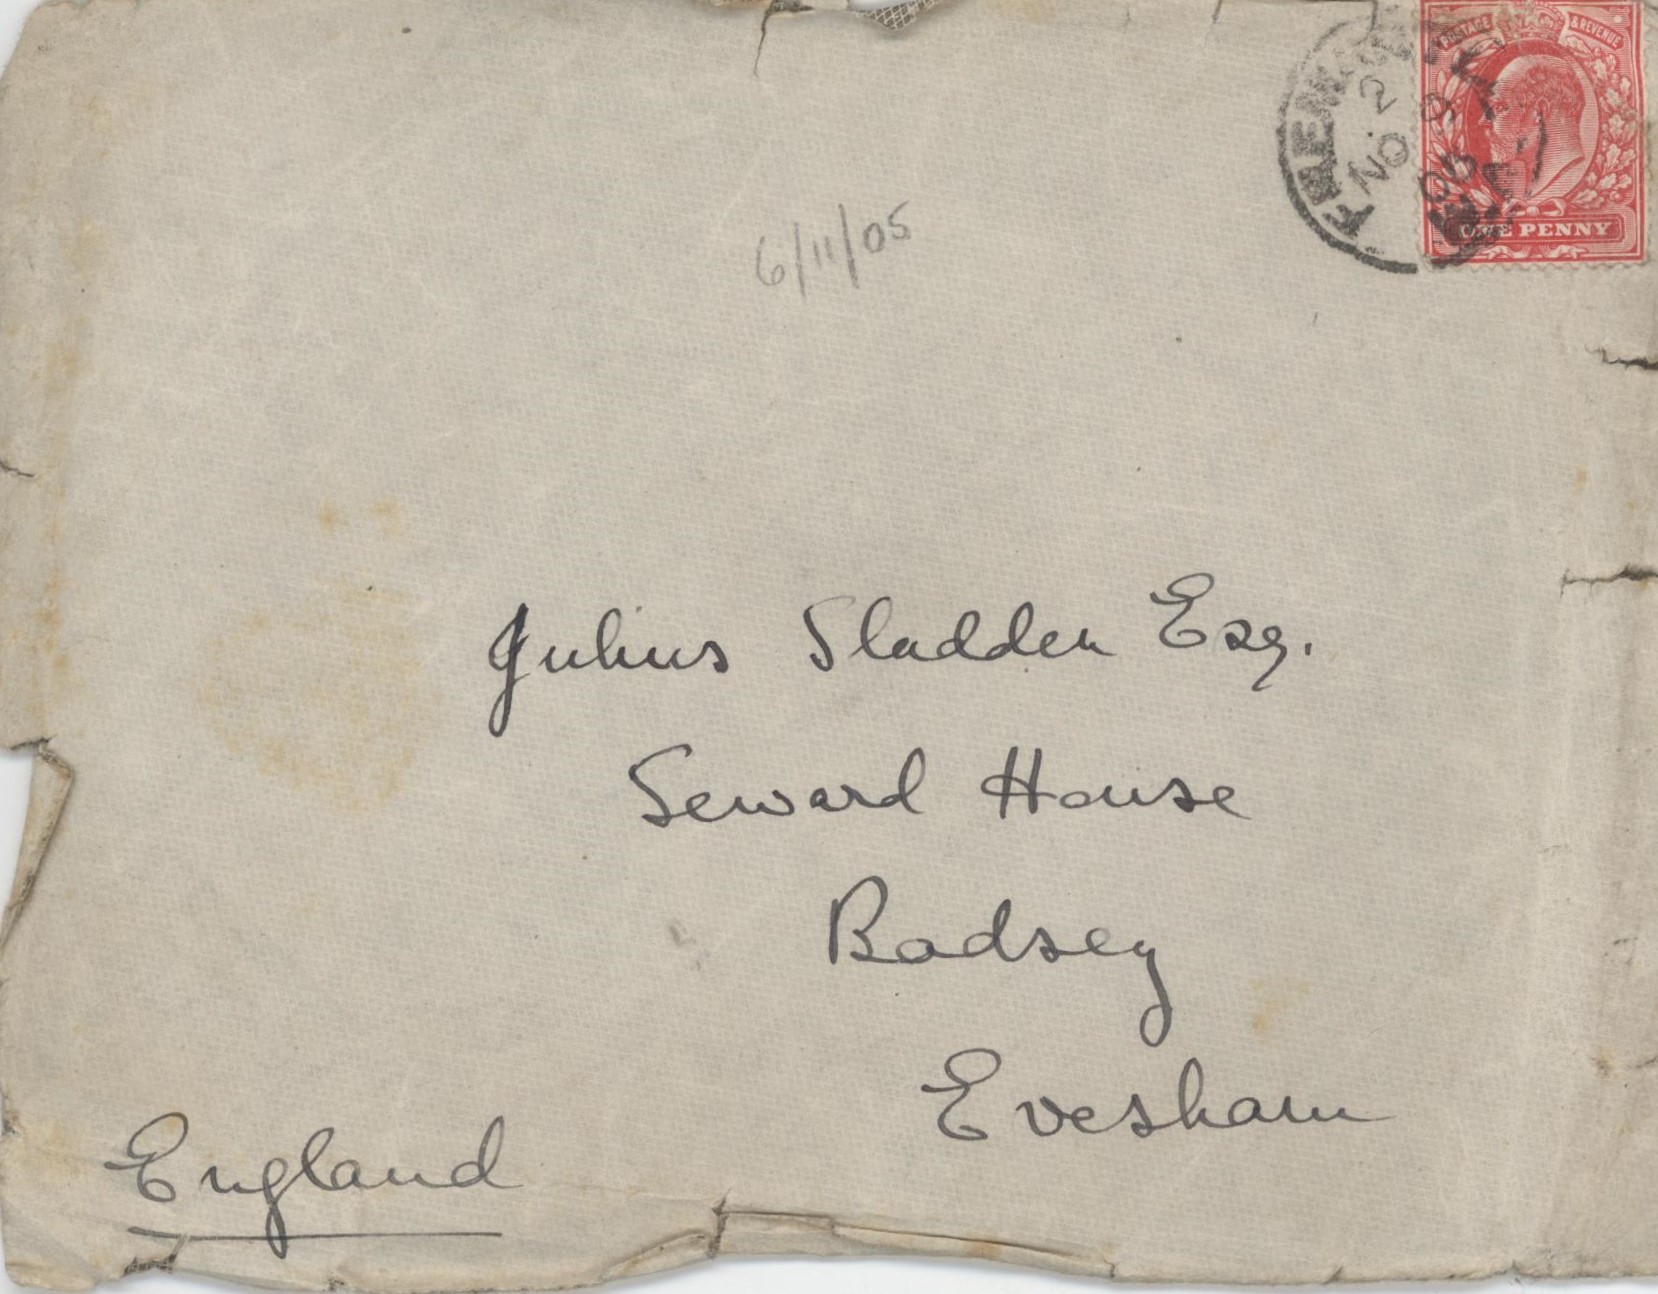 POSTAGE & REVENUE
NO 2
05
ONE PENNY
6/11/05
Julius Sladden Esq.
Seward House
Badsey
Evesham
England